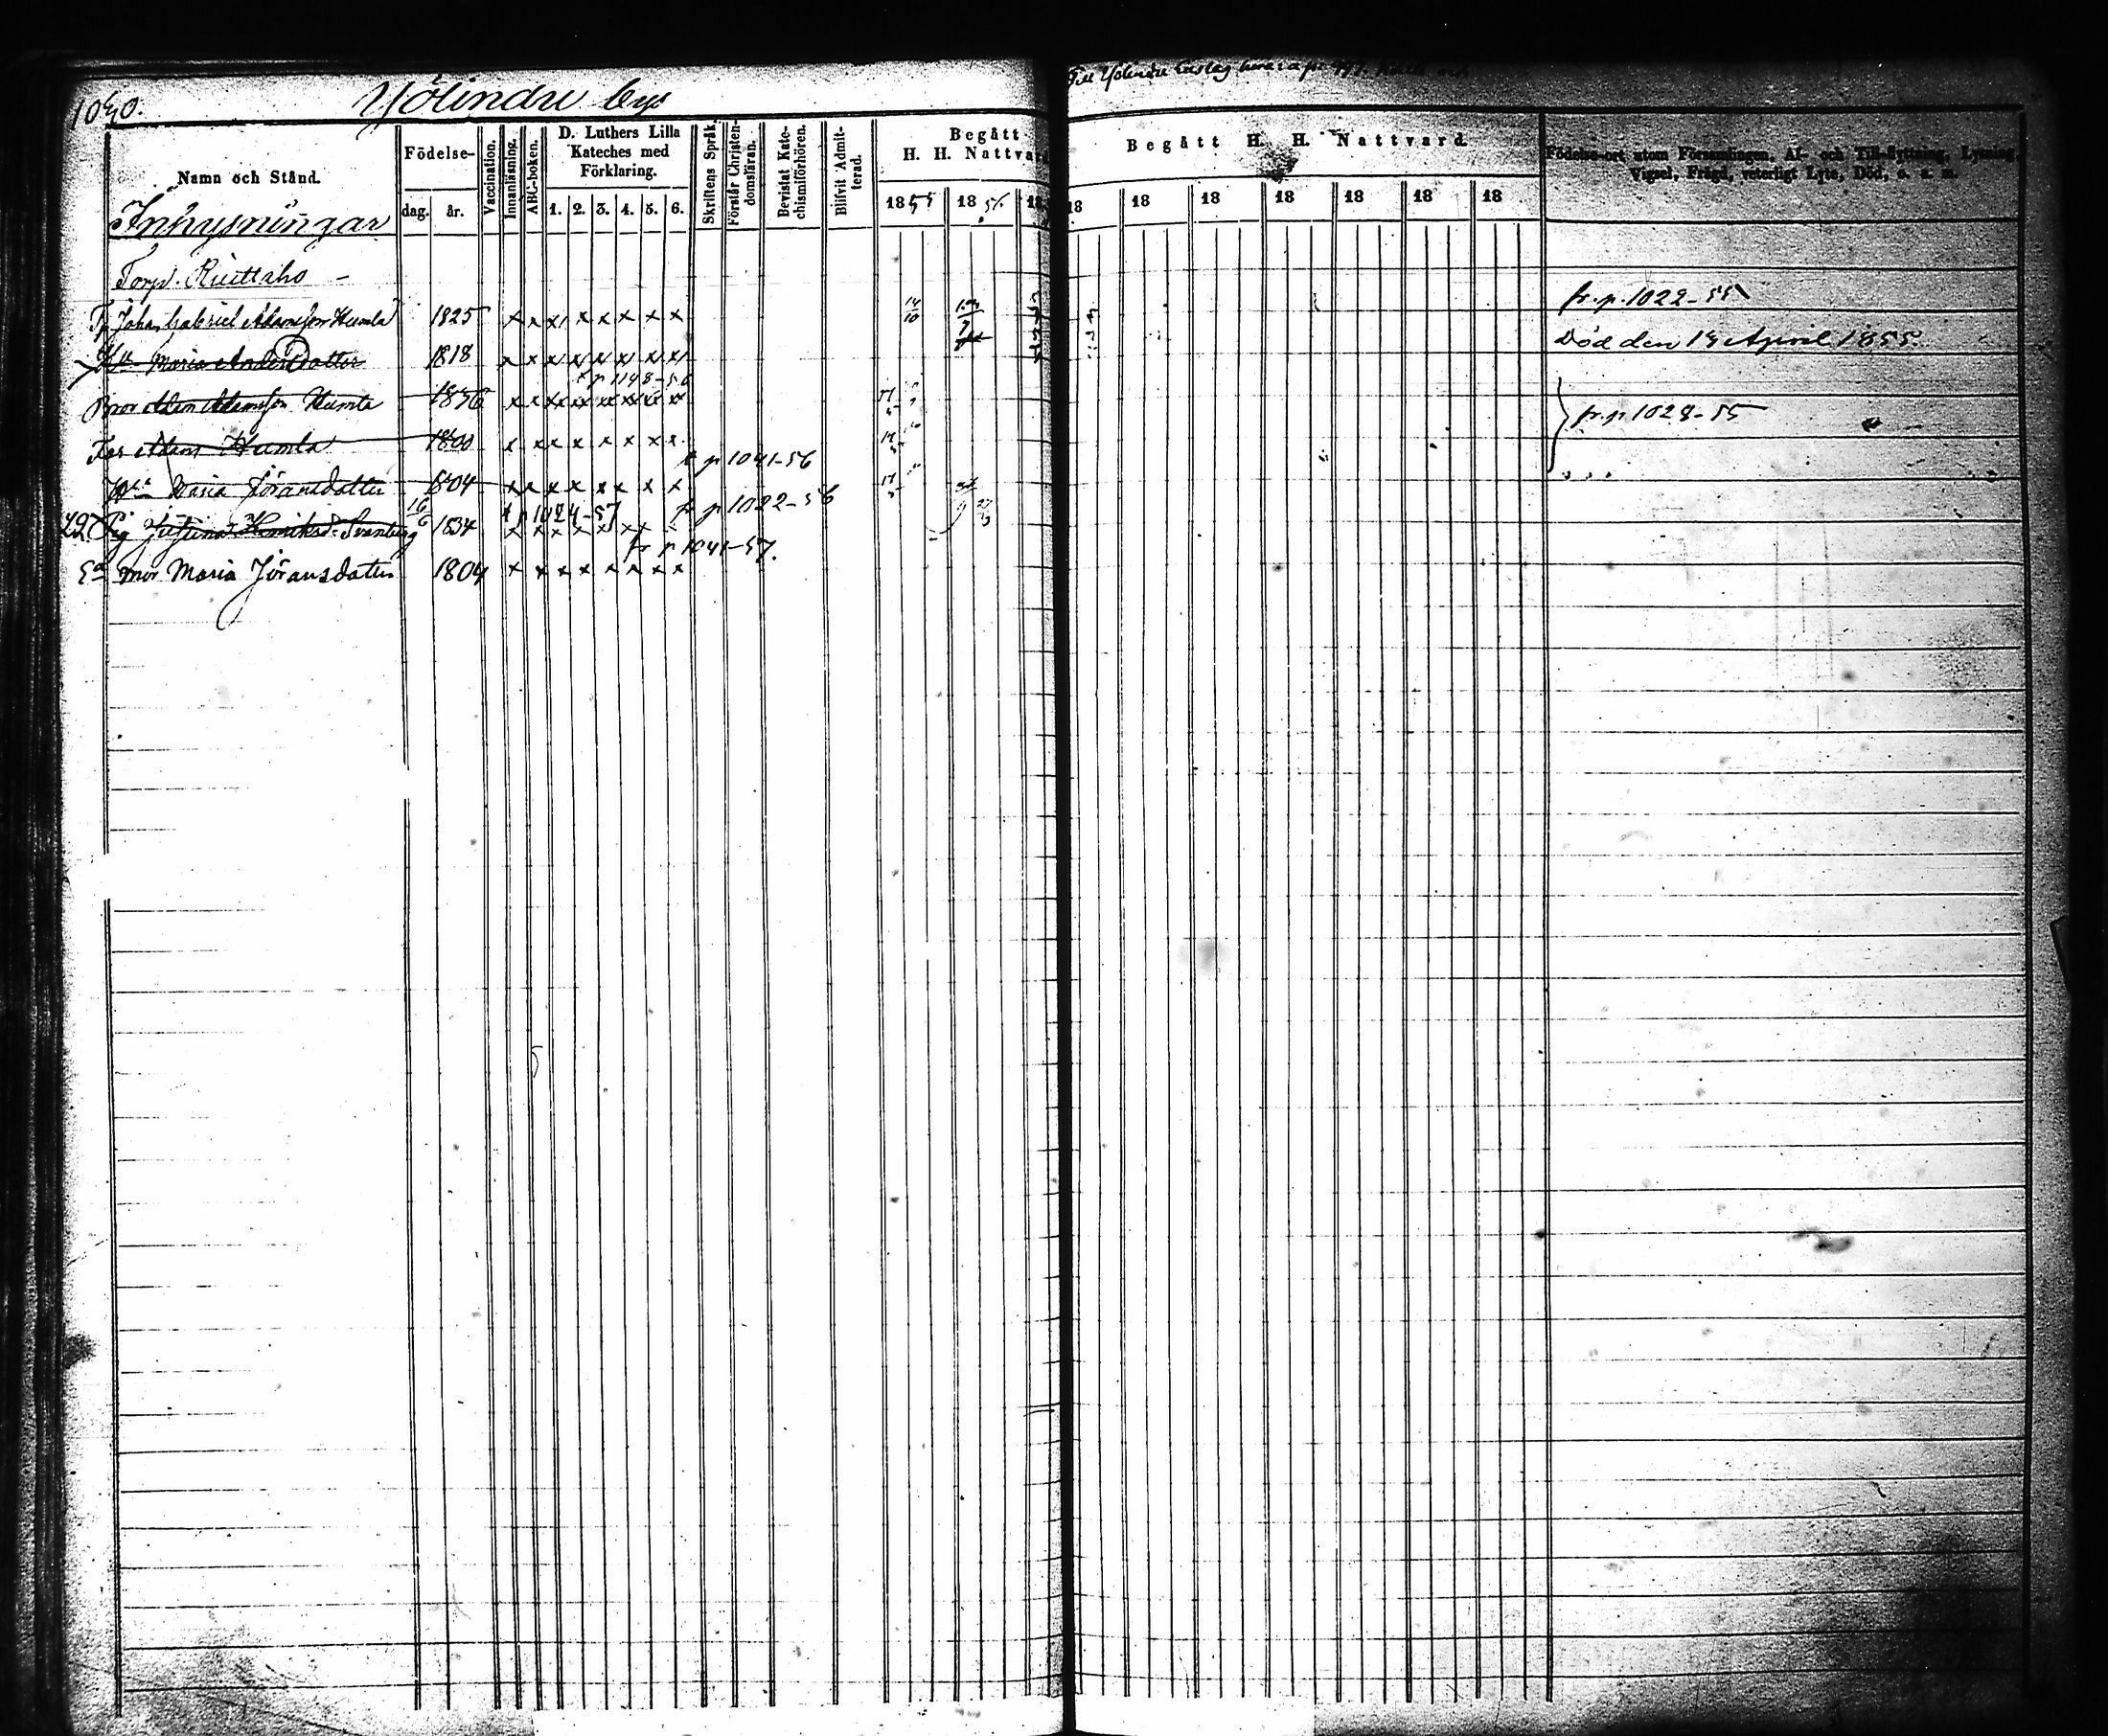 1040.
Yölindre bys
Till Yölindre
Namn och Stånd.
Födelse-
dag.
år.
Vaccination.
Innanläsning.
ABC-boken.
D. Luthers Lilla Kateches med Förklaring.
1. 2. 3. 4. 5. 6.
Skriftens Språk.
Förstår Christendomsläran.
Bevistat Katechismiförhören.
Blifvit Admitterad.
Begått H. H. Nattvard
1855 1856 18
Begått H. H. Nattvard.
18 18 18 18 18 18 18
Födelse-ort utom Församlingen, Af- och Till-flyttning, Lysning, Vigsel, Frägd, veterligt Lyte, Död, o. s. m.
Inhysningar
Torp. Ruittaho -
Tp Johan Gabriel Adamsson Humla 1825 x x x x x x x x 14/10 fr. p. 1022-55
Hu Maria Andersdotter 1818 x x x x x x x x Död den 14 April 1855.
t p 1148-56
Bror Adam Adamsson Humla 1836 x x x x x x x x fr. p 1028-55
Far Adam Humla 1800 x x x x x x x x
t p 1041-56
Hu Maria Jöransdotter 1804 x x x x x x x x
t p 1024-57 fr p 1022-56
Pig Justina Henriksd. Svanberg 16/6 1834 x x x x x x x
fr p 1041-57.
Ea mor Maria Jöransdotter 1804 x x x x x x x x